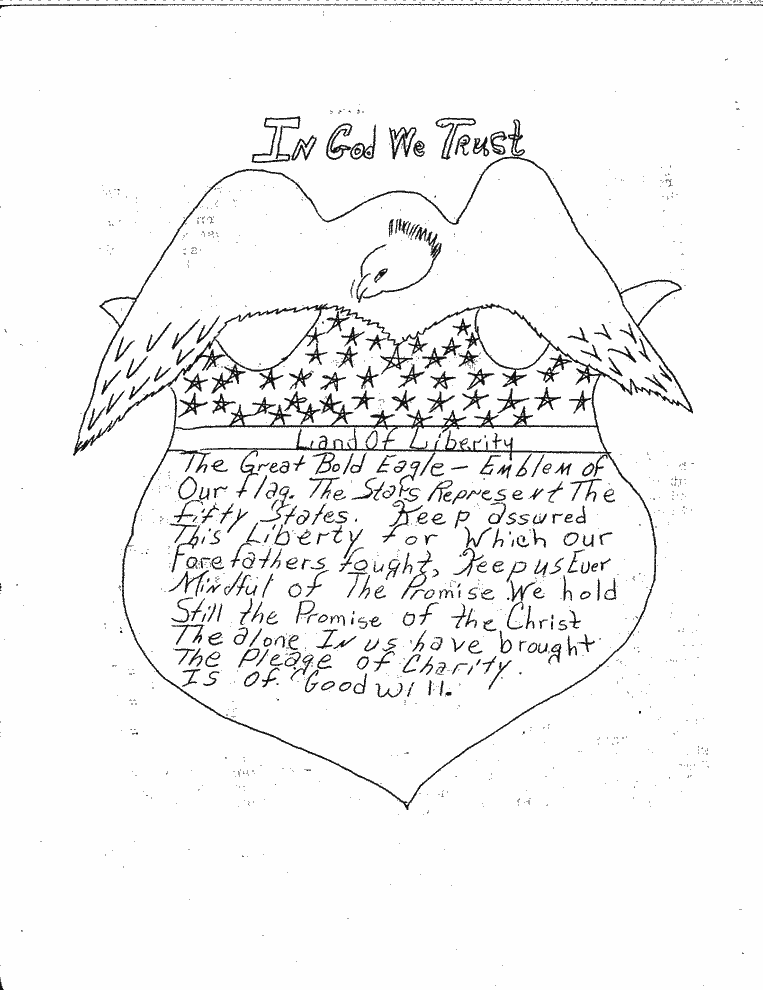 In God We Trust
Land Of Liberity
The Great Bold Eagle - Emblem of
Our flag. The Stars Represent The
fifty States. Keep assured
This Liberty for Which our
Forefathers fought, Keep us Ever
Mindful of The Promise We hold
Still the Promise of the Christ
The alone In us have brought
The Pleage of Charity.
Is Of Good Will.